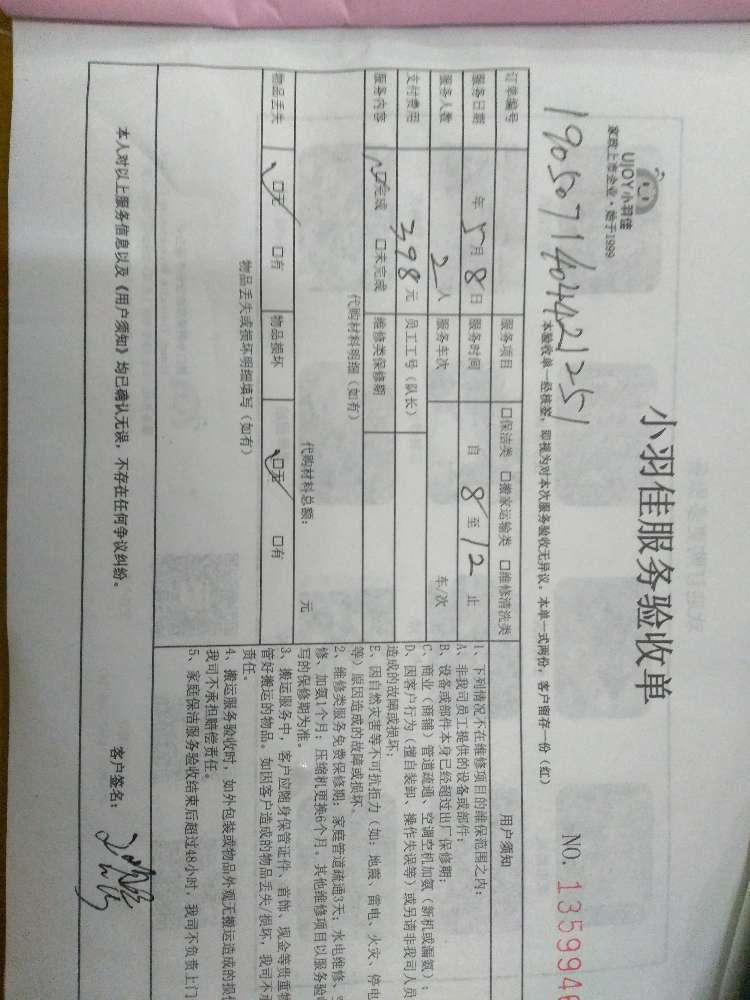 UJOY小羽佳
家政上市企业·始于1999
小羽佳服务验收单
NO. 1359946
190507140442125
本验收单一经核签，即视为对本次服务验收无异议。本单一式两份，客户留存一份（红）
订单编号 服务项目 口保洁类 口搬家运输类 口维修清洗类 用户须知
服务日期 年5月8日 服务时间 自8至12止
服务人数 2人 服务车次 车/次
支付费用 398元 员工工号（队长）
服务内容 口完成 口未完成 维修类保修期
代购材料明细（如有）
代购材料总额： 元
物品丢失 口无 口有 物品损坏 口无 口有
物品丢失或损坏明细填写（如有）
1、下列情况不在维修项目的维保范围之内：
A、非我司员工提供的设备或部件；
B、设备或部件本身已经超过出厂保修期；
C、商业（商铺）管道疏通、空调空机加氨（新机或漏氨）；
D、因客户行为（擅自装卸、操作失误等）或另请非我司人员
造成的故障或损坏；
E、因自然灾害等不可抗拒力（如：地震、雷电、火灾、停电
等）原因造成的故障或损坏。
2、维修类服务免费保修期：家庭管道疏通3天；水电维修、
修、加氨1个月；压缩机更换6个月。其他维修项目以服务验
写的保修期为准。
3、搬运服务中，客户应随身保管证件、首饰、现金等贵重
管好搬运的物品。如因客户造成的物品丢失/损坏，我司不
责任。
4、搬运服务验收时，如外包装或物品外观无搬运造成的损
我司不承担赔偿责任。
5、家庭保洁服务验收结束后超过48小时，我司不负责上门
本人对以上服务信息以及《用户须知》均已确认无误，不存在任何争议纠纷。 客户签名：